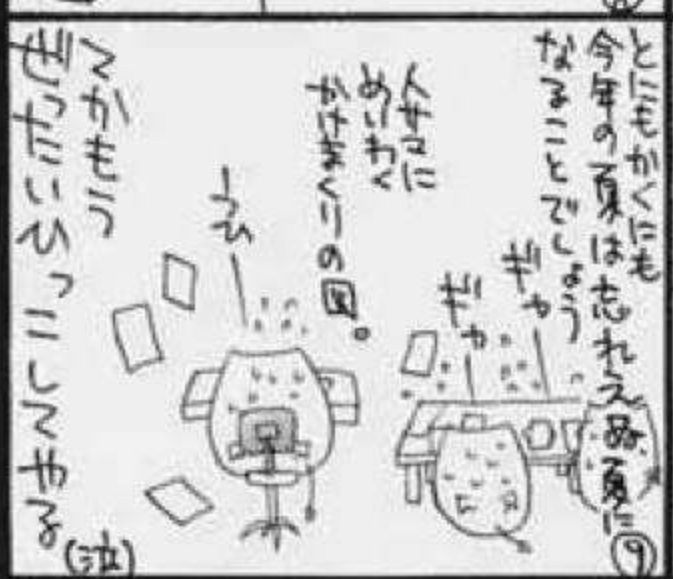 とにもかくにも
今年の夏は忘れえぬ夏に
なることでしょう
ギャ
ギャ
人サマに
めいわく
かけまくりの図。
てかもう
ぜったいひっこしてやる
(泣)
9